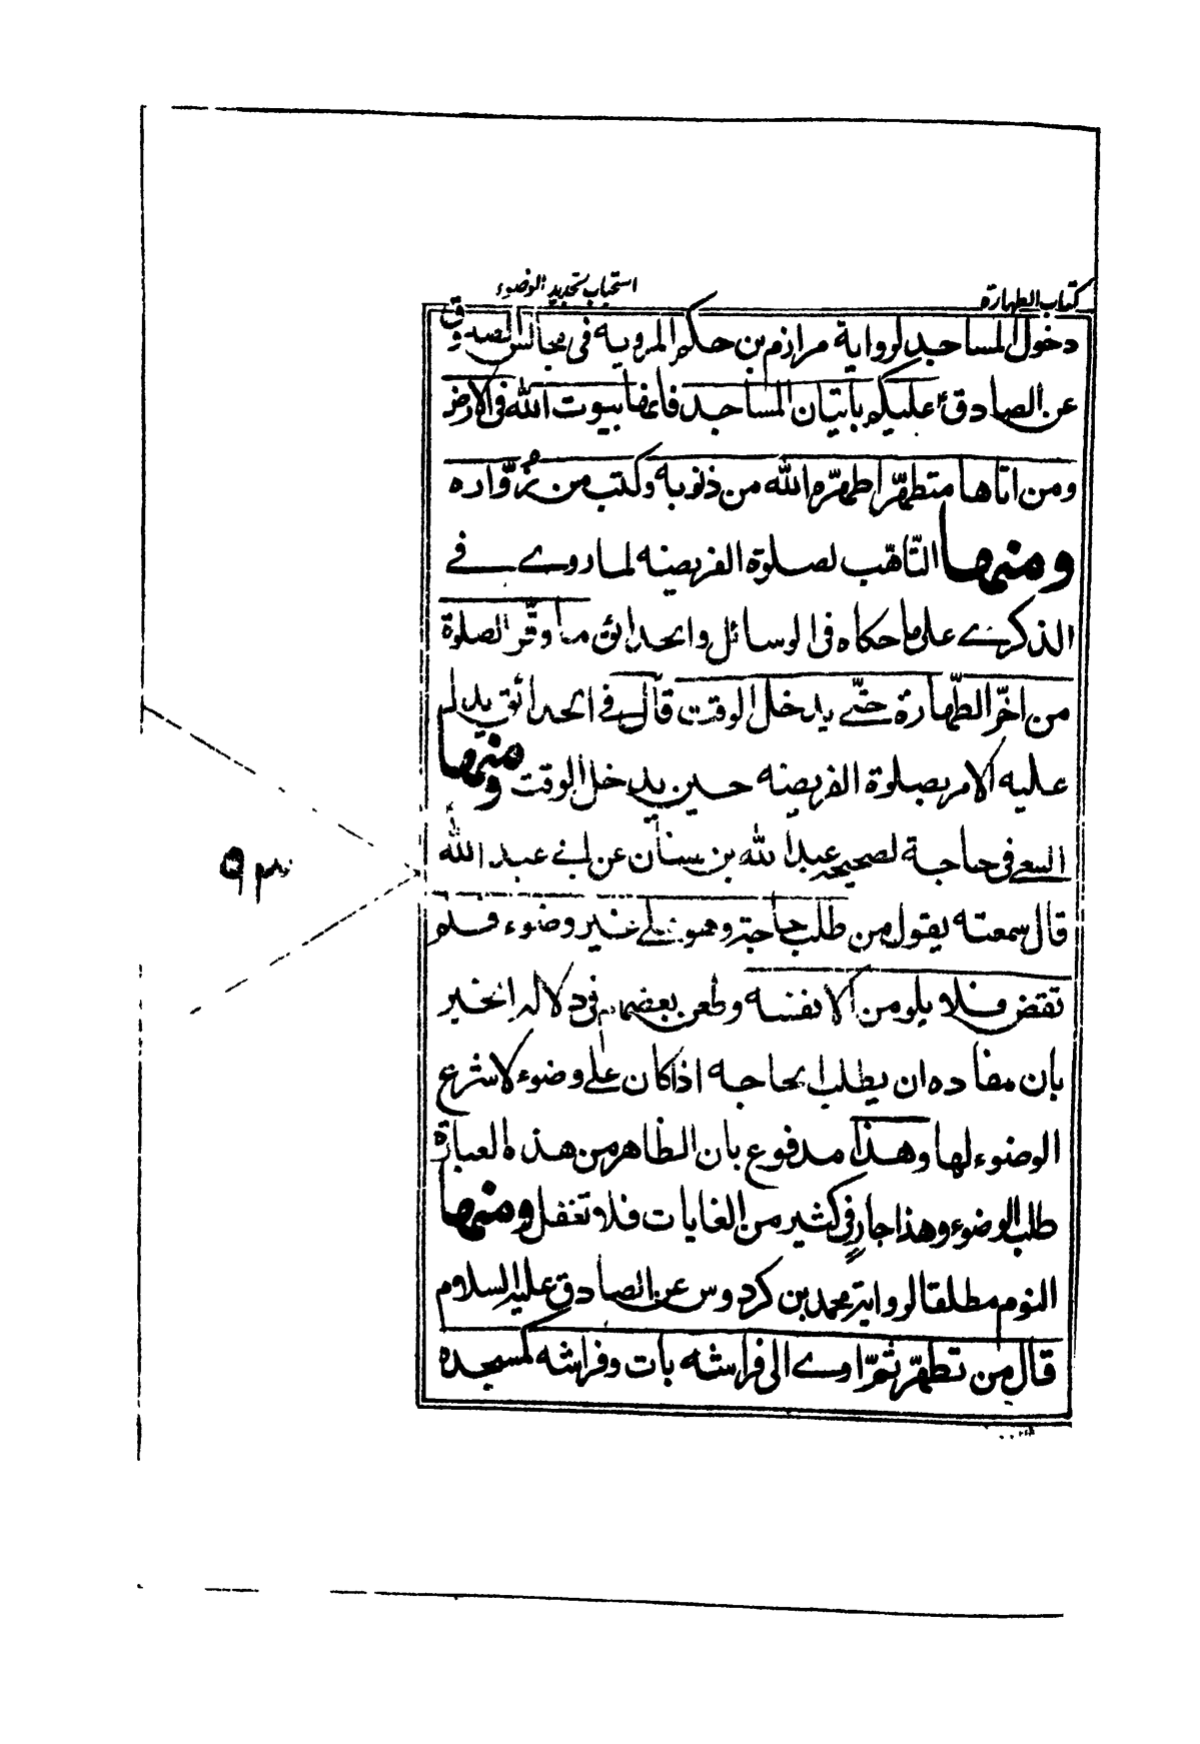 كتاب الطهارة
استحباب تجديد الوضوء
دخول المساجد لرواية مرازم بن حكيم المروية في مجالس الصدوق
عن الصادق ع عليكم باتيان المساجد فانها بيوت الله في الارض
ومن اتاها متطهّرا طهّره الله من ذنوبه وكتب من زُوّاره
ومنها التّاهّب لصلوة الفريضه لما روي في
الذكرى على ما حكاه في الوسائل والحدائق ما وقّر الصلوة
من اخّر الطّهارة حتّى يدخل الوقت قال في الحدائق يدل
عليه الامر بصلوة الفريضه حين يدخل الوقت ومنها
السعي في حاجة لصحيحه عبد الله بن سنان عن ابي عبد الله
قال سمعته يقول من طلب حاجة وهو على غير وضوء فلم
تقض فلا يلومن الا نفسه وطعن بعضهم في دلالة الخبر
بان مفاده ان يطلب الحاجه اذا كان على وضوء لا شرع
الوضوء لها وهذا مدفوع بان الظاهر من هذه العبارة
طلب الوضوء وهذا جارٍ في كثير من الغايات فلا تغفل ومنها
النوم مطلقا لرواية محمد بن كردوس عن الصادق عليه السلام
قال من تطهّر ثمّ اوى الى فراشه بات وفراشه كمسجده